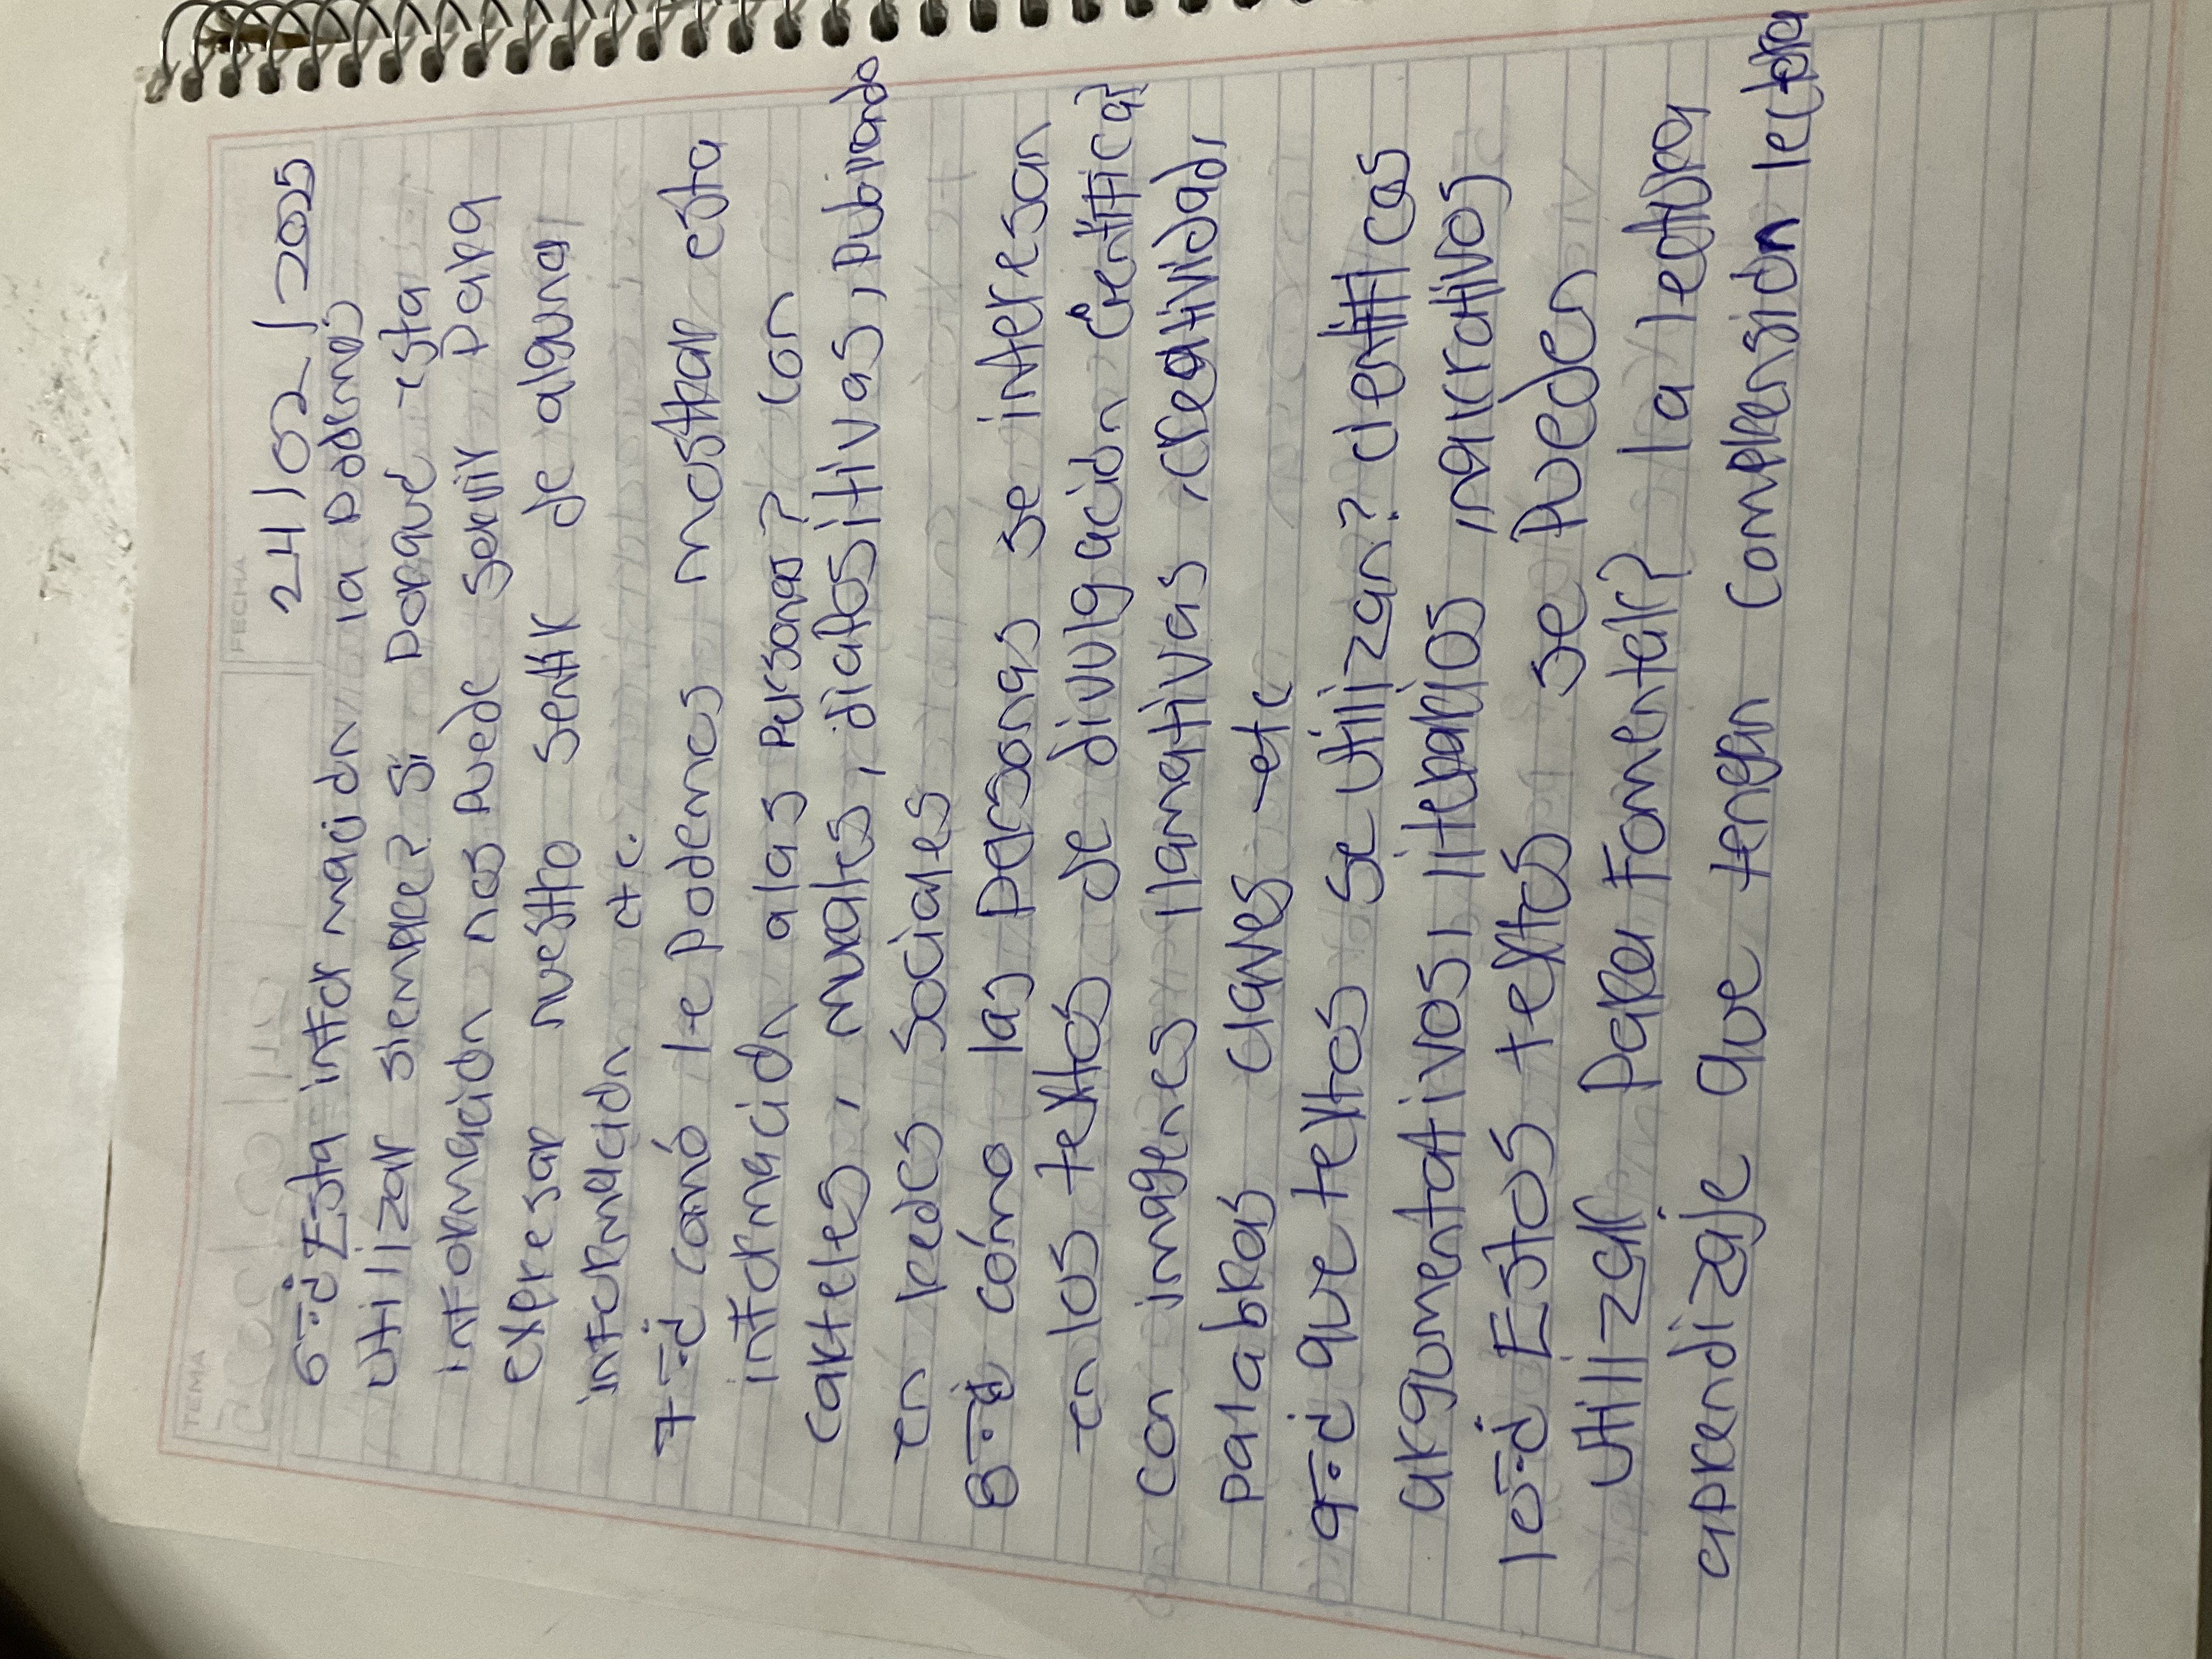 TEMA
FECHA
24/02/2025
6-.¿Esta información la podemos
utilizar siempre? si porque esta
información nos puede servir para
expresar nuestro sentir de alguna
información etc.
7-.¿comó le podemos mostrar esta
información a las personas? con
carteles, murales, diapositivas, publicando
en redes sociales
8-.¿ cómo las personas se interesan
en los textos de divulgación Científica?
con imagenes llamativas, creatividad,
palabras claves etc
9-.¿que textos se utilizan? cientificas
argumentativos, literarios, narrativos
10-.¿Estos textos se pueden
utilizar para Fomentar? la lectura
aprendizaje que tengan comprensión lectora